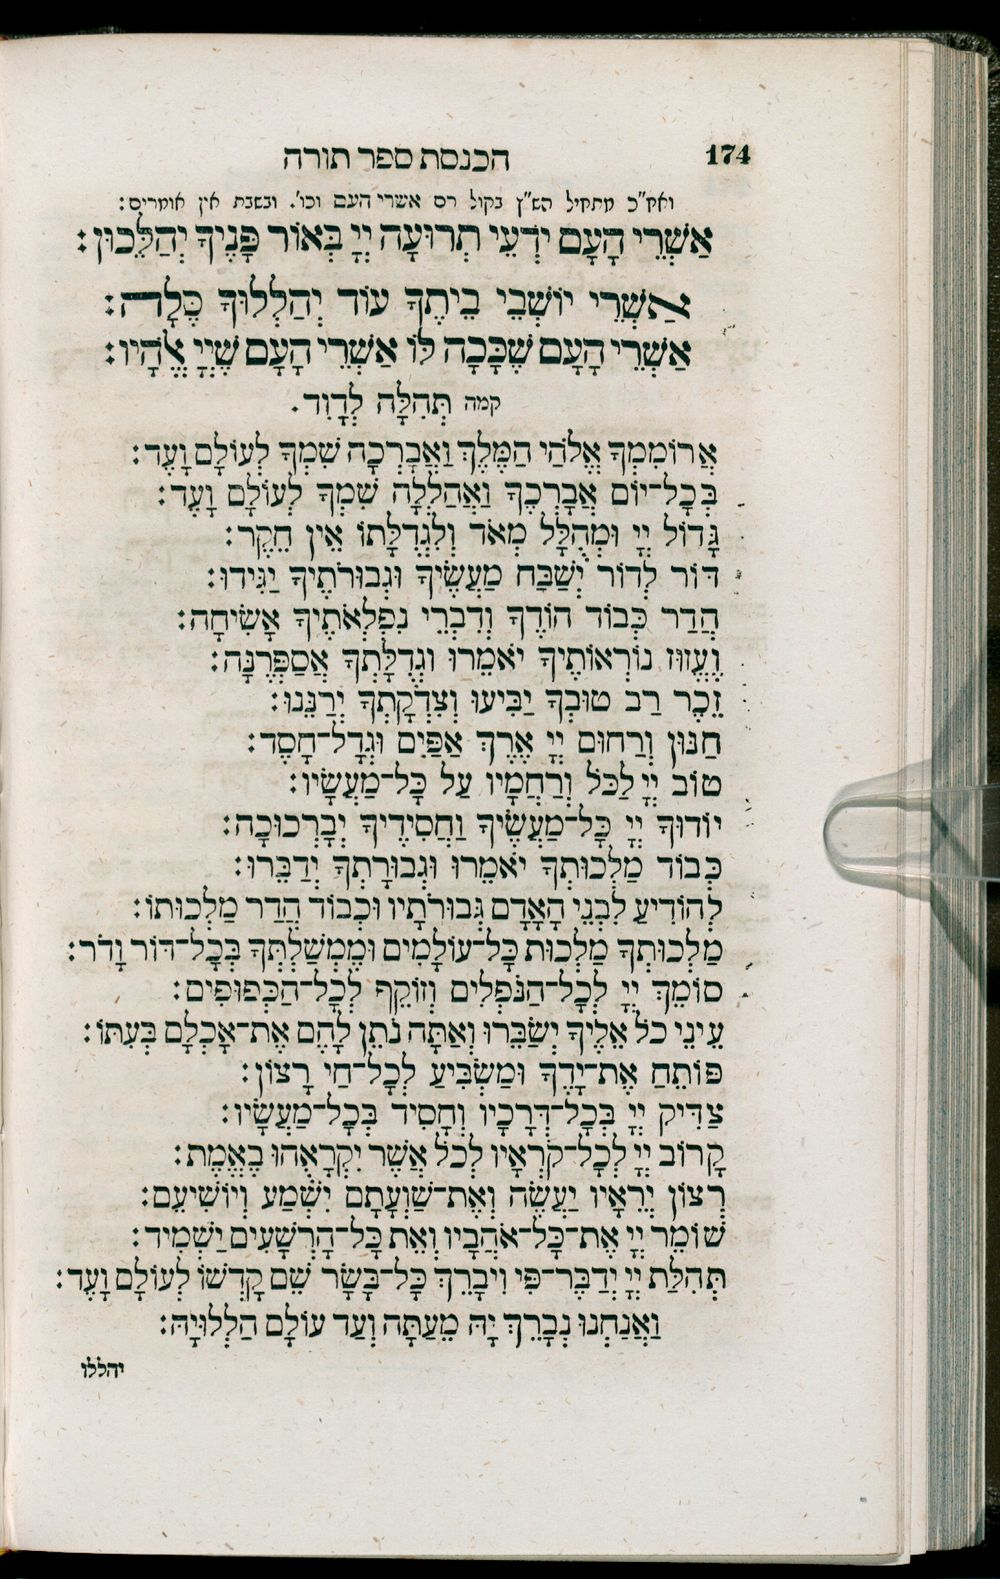 174 הכנסת ספר תורה
ואח"כ מתחיל הש"ץ בקול רם אשרי העם וכו'. ובשבת אין אומרים:
אַשְׁרֵי הָעָם יֹדְעֵי תְרוּעָה יְיָ בְּאוֹר פָּנֶיךָ יְהַלֵּכוּן:
אַשְׁרֵי יוֹשְׁבֵי בֵיתֶךָ עוֹד יְהַלְלוּךָ סֶּלָה:
אַשְׁרֵי הָעָם שֶׁכָּכָה לּוֹ אַשְׁרֵי הָעָם שֶׁיְיָ אֱלֹהָיו:
קמה תְּהִלָּה לְדָוִד.
אֲרוֹמִמְךָ אֱלֹהַי הַמֶּלֶךְ וַאֲבָרְכָה שִׁמְךָ לְעוֹלָם וָעֶד:
בְּכָל־יוֹם אֲבָרְכֶךָּ וַאֲהַלְלָה שִׁמְךָ לְעוֹלָם וָעֶד:
גָּדוֹל יְיָ וּמְהֻלָּל מְאֹד וְלִגְדֻלָּתוֹ אֵין חֵקֶר:
דּוֹר לְדוֹר יְשַׁבַּח מַעֲשֶׂיךָ וּגְבוּרֹתֶיךָ יַגִּידוּ:
הֲדַר כְּבוֹד הוֹדֶךָ וְדִבְרֵי נִפְלְאֹתֶיךָ אָשִׂיחָה:
וֶעֱזוּז נוֹרְאוֹתֶיךָ יֹאמֵרוּ וּגְדֻלָּתְךָ אֲסַפְּרֶנָּה:
זֵכֶר רַב טוּבְךָ יַבִּיעוּ וְצִדְקָתְךָ יְרַנֵּנוּ:
חַנּוּן וְרַחוּם יְיָ אֶרֶךְ אַפַּיִם וּגְדָל־חָסֶד:
טוֹב יְיָ לַכֹּל וְרַחֲמָיו עַל כָּל־מַעֲשָׂיו:
יוֹדוּךָ יְיָ כָּל־מַעֲשֶׂיךָ וַחֲסִידֶיךָ יְבָרְכוּכָה:
כְּבוֹד מַלְכוּתְךָ יֹאמֵרוּ וּגְבוּרָתְךָ יְדַבֵּרוּ:
לְהוֹדִיעַ לִבְנֵי הָאָדָם גְּבוּרֹתָיו וּכְבוֹד הֲדַר מַלְכוּתוֹ:
מַלְכוּתְךָ מַלְכוּת כָּל־עוֹלָמִים וּמֶמְשַׁלְתְּךָ בְּכָל־דּוֹר וָדֹר:
סוֹמֵךְ יְיָ לְכָל־הַנֹּפְלִים וְזוֹקֵף לְכָל־הַכְּפוּפִים:
עֵינֵי כֹל אֵלֶיךָ יְשַׂבֵּרוּ וְאַתָּה נֹתֵן לָהֶם אֶת־אָכְלָם בְּעִתּוֹ:
פּוֹתֵחַ אֶת־יָדֶךָ וּמַשְׂבִּיעַ לְכָל־חַי רָצוֹן:
צַדִּיק יְיָ בְּכָל־דְּרָכָיו וְחָסִיד בְּכָל־מַעֲשָׂיו:
קָרוֹב יְיָ לְכָל־קֹרְאָיו לְכֹל אֲשֶׁר יִקְרָאֻהוּ בֶאֱמֶת:
רְצוֹן יְרֵאָיו יַעֲשֶׂה וְאֶת־שַׁוְעָתָם יִשְׁמַע וְיוֹשִׁיעֵם:
שׁוֹמֵר יְיָ אֶת־כָּל־אֹהֲבָיו וְאֵת כָּל־הָרְשָׁעִים יַשְׁמִיד:
תְּהִלַּת יְיָ יְדַבֶּר־פִּי וִיבָרֵךְ כָּל־בָּשָׂר שֵׁם קָדְשׁוֹ לְעוֹלָם וָעֶד:
וַאֲנַחְנוּ נְבָרֵךְ יָהּ מֵעַתָּה וְעַד עוֹלָם הַלְלוּיָהּ:
יהללו